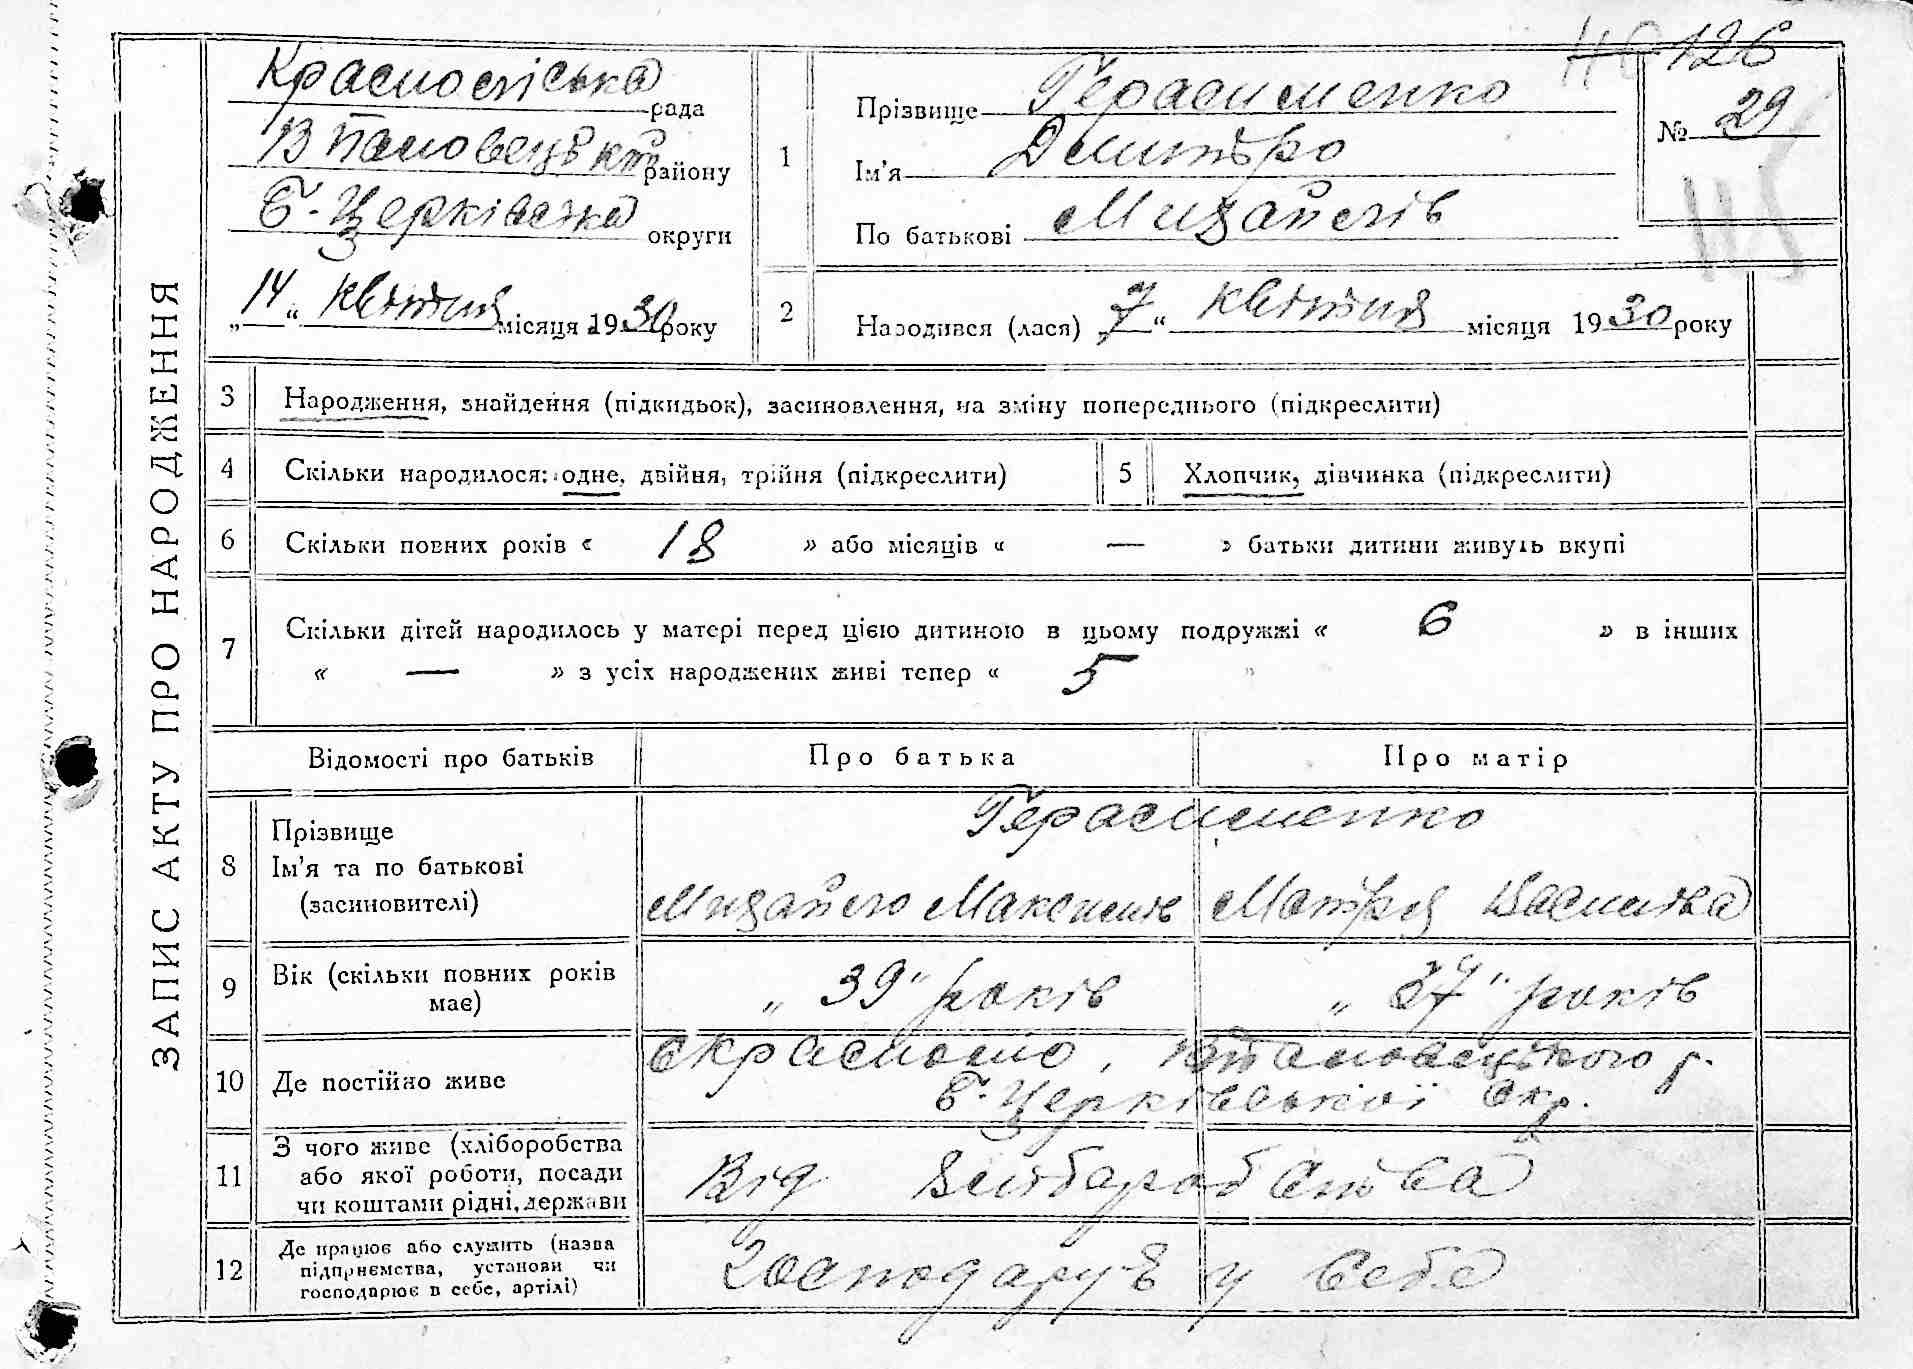 ЗАПИС АКТУ ПРО НАРОДЖЕННЯ
126
Красносільська рада
району
Б-Церківська округи
„14“ квітня місяця 1930 року
1
Прізвище Герасименко
Ім'я Дмитро
По батькові Михайлів
№ 29
2
Народився (лася) 7 “ квітня місяця 1930 року
3 Народження, знайдення (підкидьок), засиновлення, на зміну попереднього (підкреслити)
4 Скільки народилося: одне, двійня, трійня (підкреслити) 5 Хлопчик, дівчинка (підкреслити)
6 Скільки повних років « 18 » або місяців « — » батьки дитини живуть вкупі
7 Скільки дітей народилось у матері перед цією дитиною в цьому подружжі « 6 » в інших
« — » з усіх народжених живі тепер « 5 »
Відомості про батьків Про батька Про матір
8 Прізвище
Ім'я та по батькові
(засиновителі)
Герасименко
Михайло Максимів Мотря Василівна
9 Вік (скільки повних років
має)
„ 39 “ років „ 37 “ років
10 Де постійно живе
Б-Церківської Окр.
11 З чого живе (хліборобства
або якої роботи, посади
чи коштами рідні, держави
Від хліборобства
12 Де працює або служить (назва
підприємства, установи чи
господарює в себе, артілі)
Господарує у себе